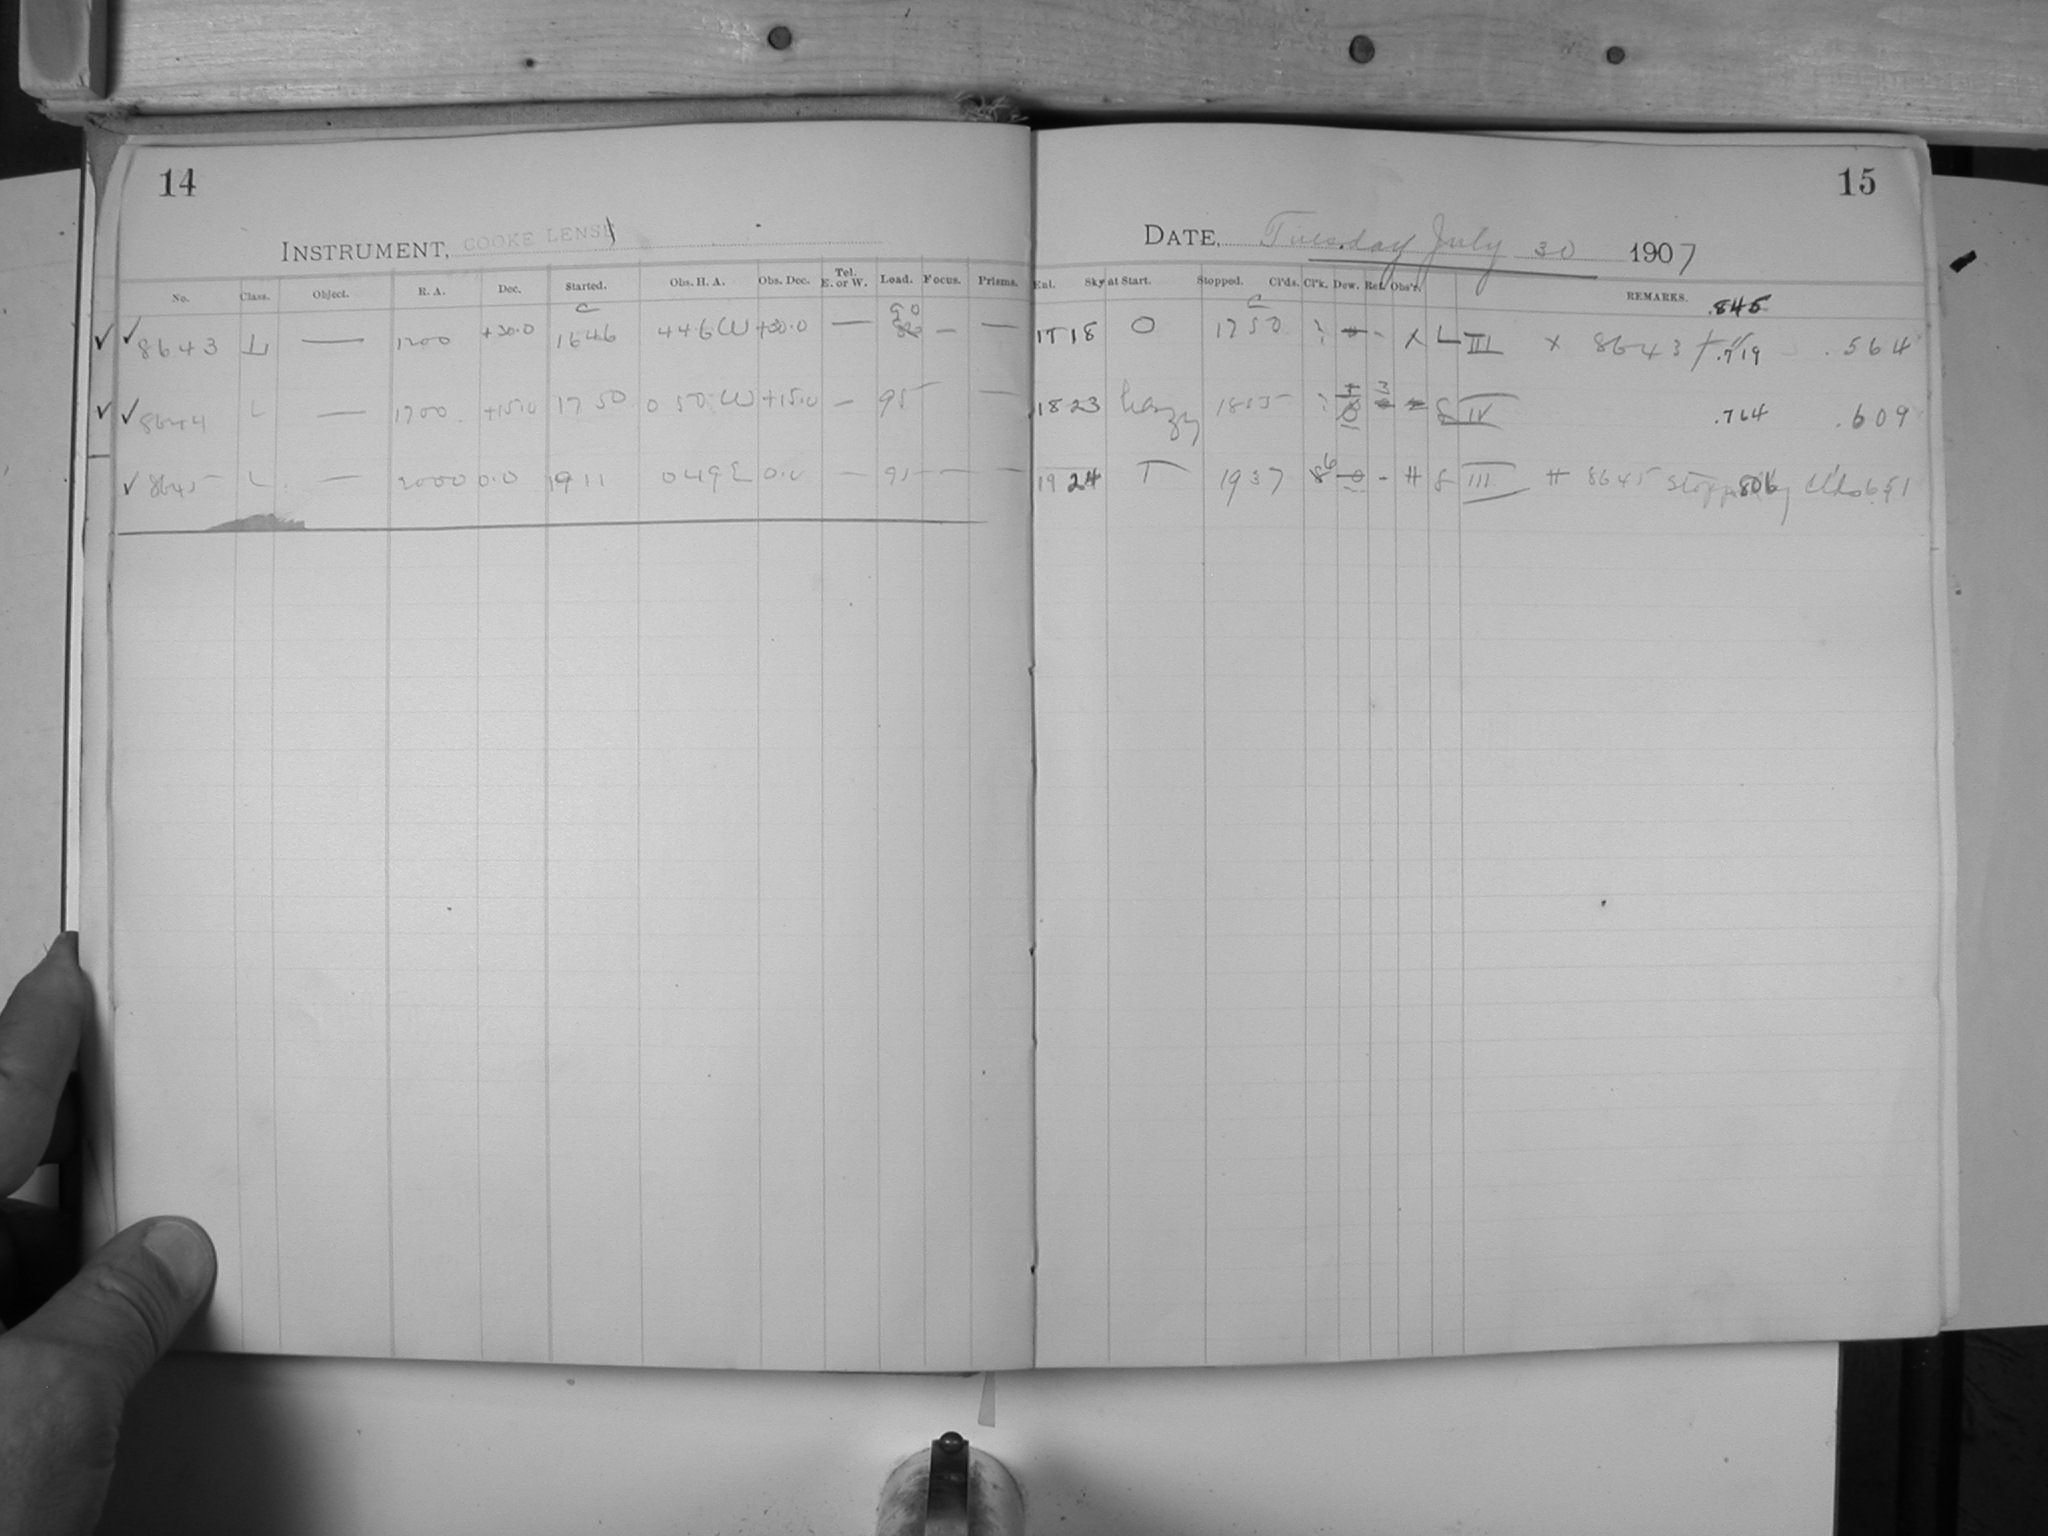 14
INSTRUMENT, COOKE LENS
No. Class. Object. R. A. Dec. Started. Obs. H. A. Obs. Dec. Tel. E. or W. Load. Focus. Prisms.
8643 L — 1200 +30.0 1646 446 W +30.0 — 90 — —
8644 L — 1700 +15.0 1750 0 50 W +15.0 — 95 —
8645 L — 2000 0.0 1911 049 E 0.0 — 95 — —
15
DATE, Tuesday July 30 1907
Ent. Sky at Start. Stopped. Cl'ds. Cl'k. Dew. Ref. Obs'r. REMARKS.
.845
1718 0 1750 ? - x L III x 8643 .719 .564
1823 hazy 1855 ? 3 IV .764 .609
1924 T 1937 6 - # 8 III # 8645 stopped by Clds .806 .651